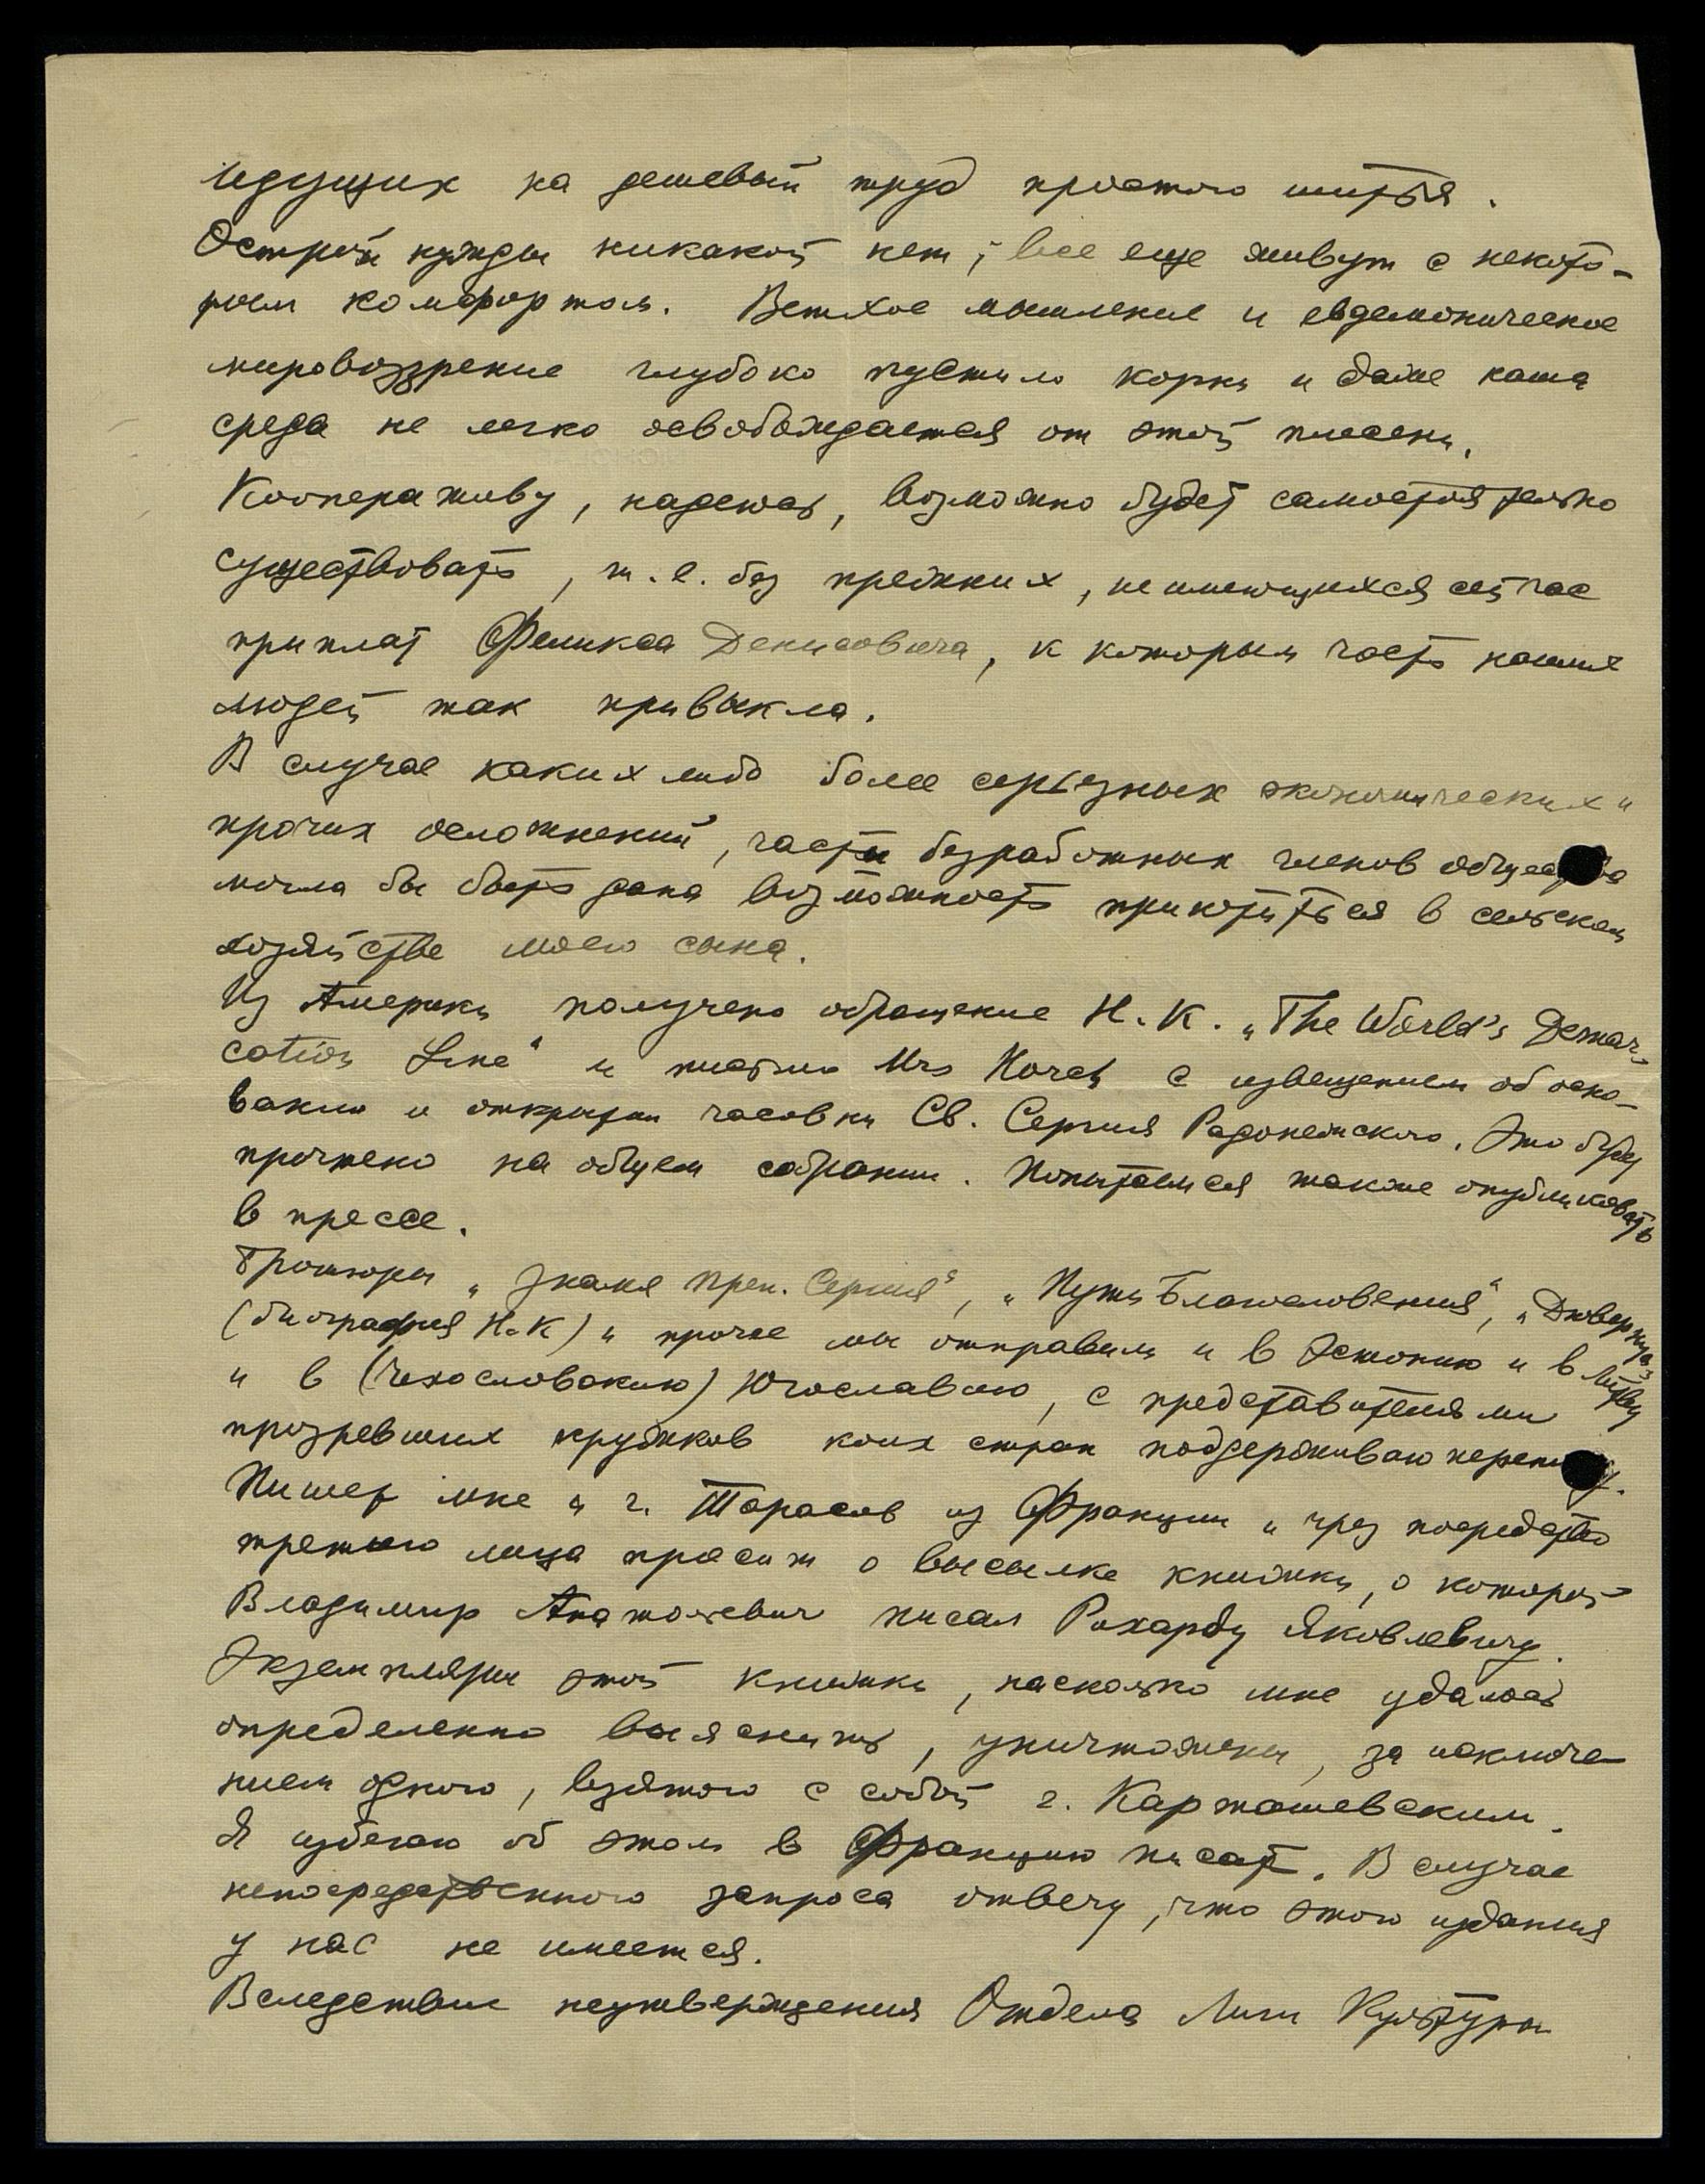 идущих на дешевый труд простого шитья.
Острой нужды никакой нет; все еще живут с некото-
рым комфортом. Ветхое мышление и евдемоническое
мировоззрение глубоко пустило корни и даже наша
среда не легко освобождается от этой плесени.
Кооперативу, надеюсь, возможно будет самостоятельно
существовать, т.е. без прежних, неимеющихся сейчас
приплат Феликса Денисовича, к которым часть наших
людей так привыкла.
В случае каких либо более серьезных экономических и
прочих осложнений, части безработных членов общества
могла бы быть дана возможность приютиться в сельском
хозяйстве моего сына.
Из Америки получено обращение Н.К. „The World's Demar-
cation Line“ и письмо Mrs Horch с извещением об осно-
вании и открытии часовни Св. Сергия Радонежского. Это будет
прочтено на общем собрании. Попытаемся также опубликовать
в прессе.
Брошюры „Знамя Преп. Сергия“, „Путь Благословения“, „Дювернуа“
(биография Н.К) и прочее мы отправили и в Эстонию и в Литву
и в (Чехословакию) Югославию, с представителями
прозревших кружков коих стран поддерживаю переписку.
Пишет мне и г. Тарасов из Франции и чрез посредство
третьего лица просит о высылке книжки, о которой
Владимир Анатольевич писал Рихарду Яковлевичу.
Экземпляры этой книжки, насколько мне удалось
определенно выяснить, уничтожены, за исключе-
нием одного, взятого с собой г. Карташевским.
Я избегаю об этом в Францию писать. В случае
непосредственного запроса отвечу, что этого издания
у нас не имеется.
Вследствие неутверждения Отдела Лиги Культуры